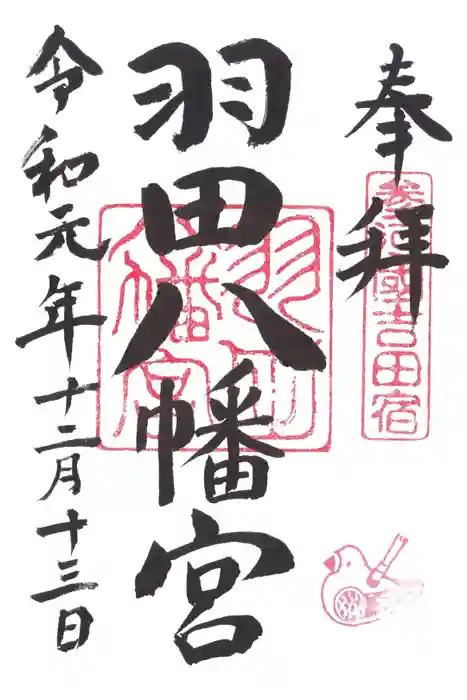 奉拝
参河國吉田宿
羽田八幡宮
羽田八幡宮
令和元年十二月十三日